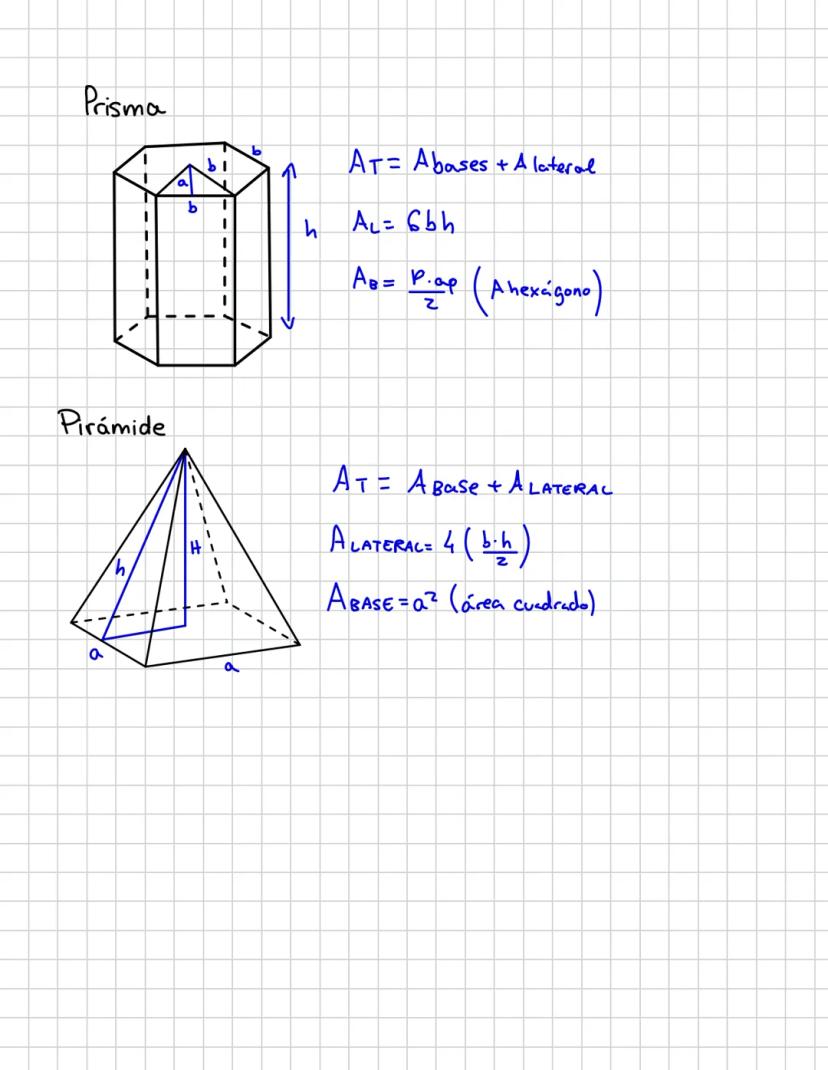 Prisma
b
b
a
b
h
AT = Abases + Alateral
AL = 6bh
AB = P.ap/2 (A hexágono)
Pirámide
h
H
a
a
AT = ABase + ALATERAL
ALATERAL = 4(b·h/2)
ABASE = a² (área cuadrado)